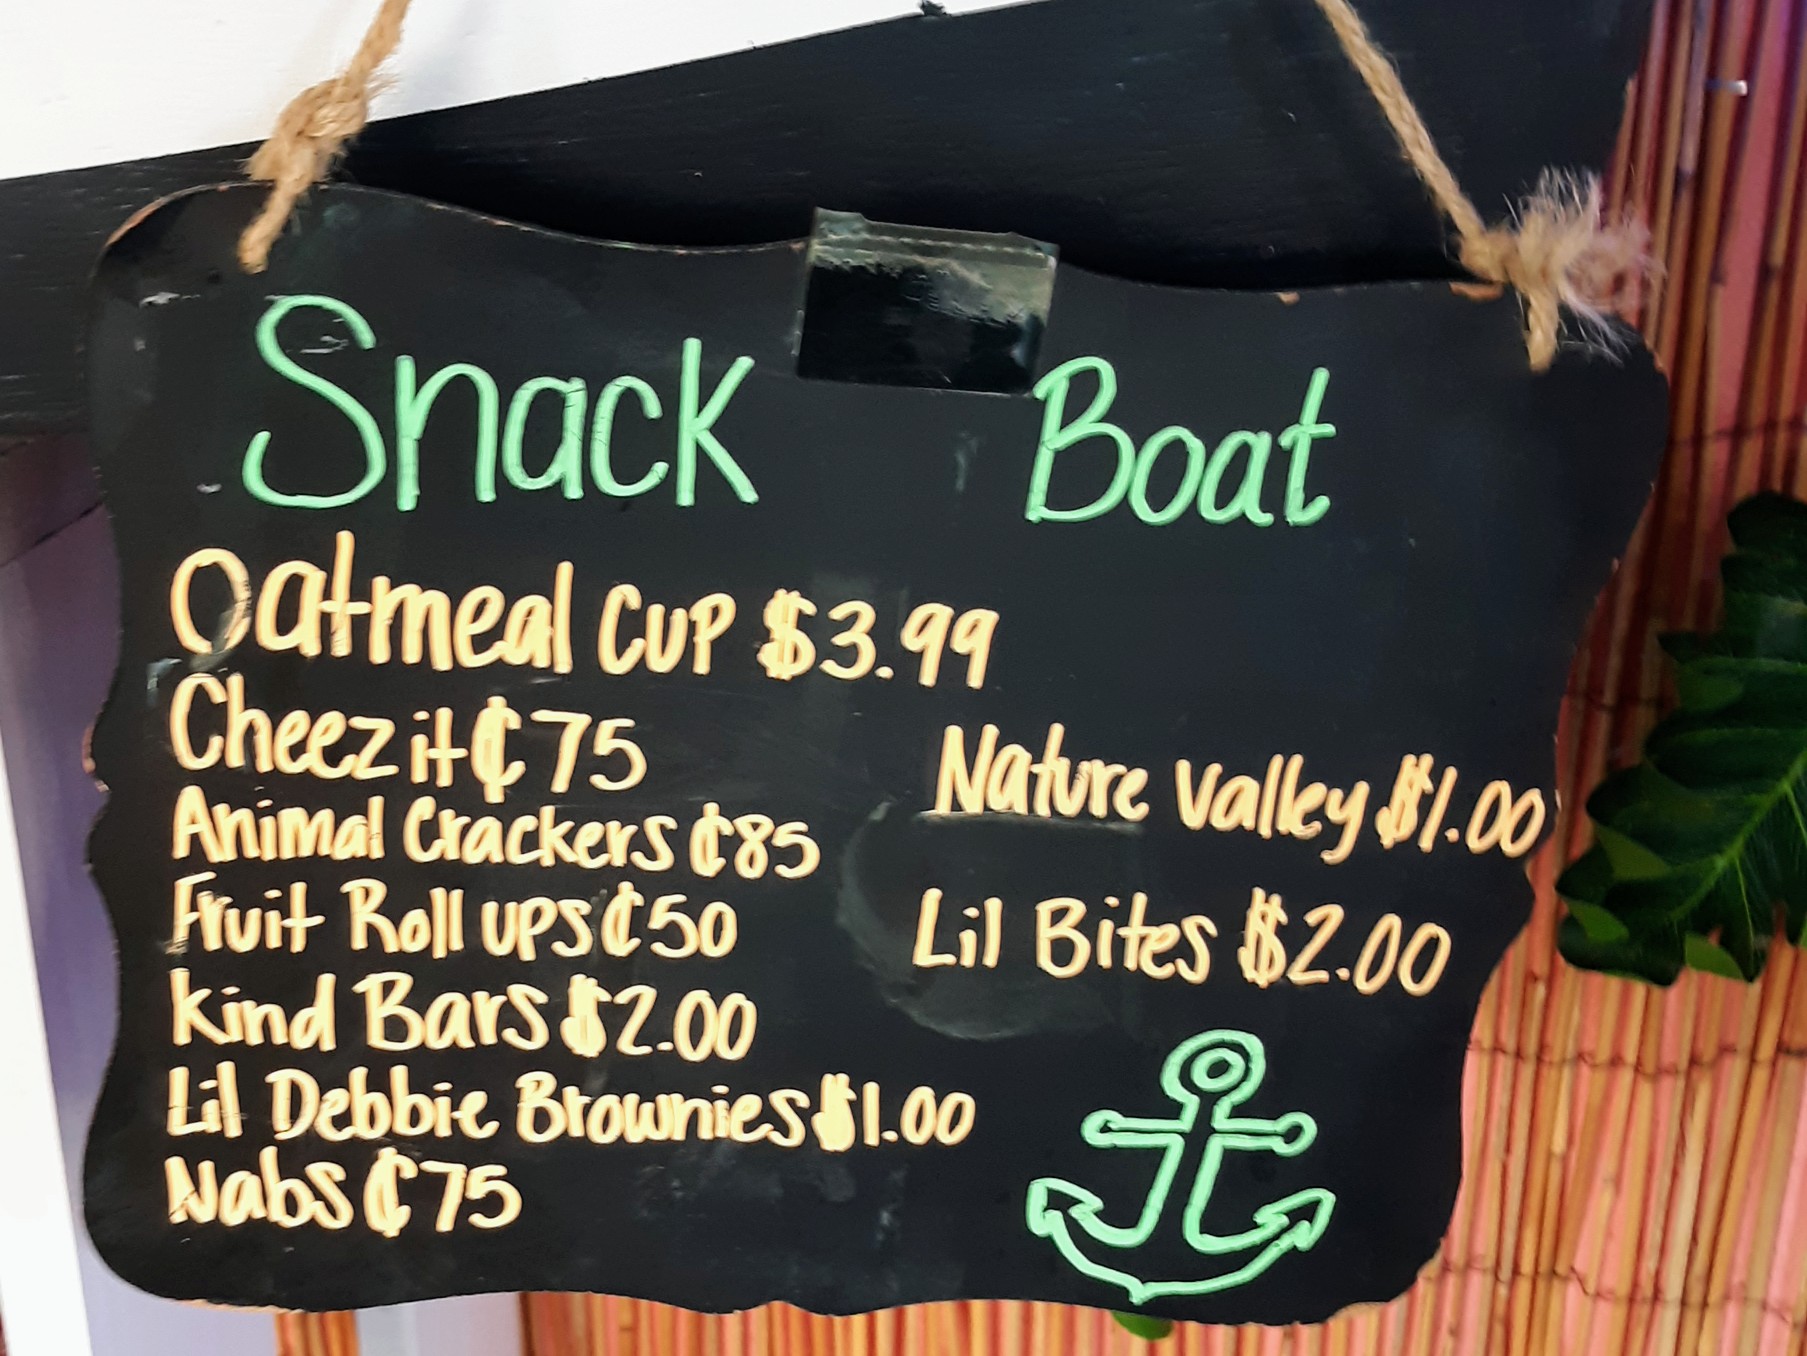 Snack Boat
Oatmeal CUP $3.99
Cheez it ₵75
Animal Crackers ₵85
Fruit Roll UPS ₵50
Kind Bars $2.00
Lil Debbie Brownies $1.00
Nabs ₵75
Nature Valley $1.00
Lil Bites $2.00